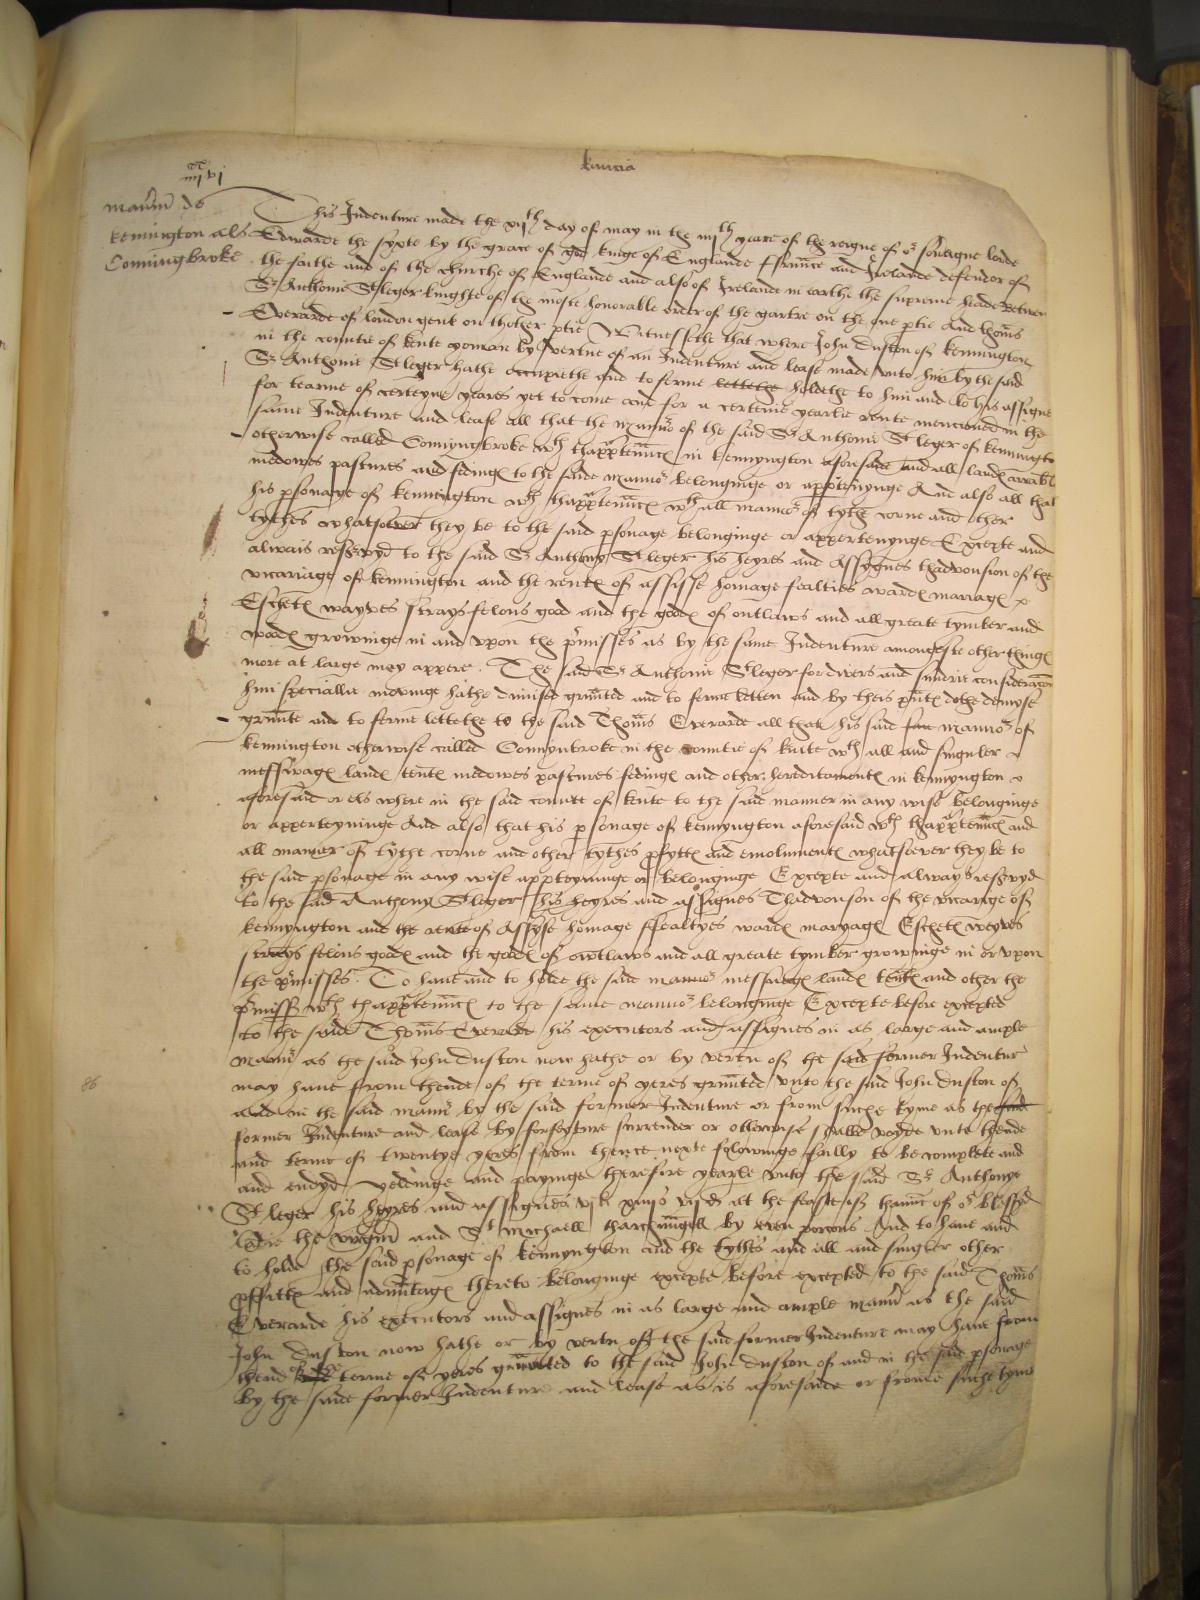 kancia
iiijxx vj
manniu de
kennington als
Conningbroke
This Indenture made the xijth day of may in the iiijth yeare of the reigne of or soueigne lorde
Edwarde the syxte by the grace of god kinge of Englande ffraunce and Irelande defendor of
the faithe and of the churche of Englande and also of Irelande in earthe the supreme heade Betwen
Sr Anthonie St leger knighte of the moste honorable order of the gartre on the one ptie And Thoms
Everarde of london gent on thother ptie Witnessethe that where John Duston of kennington
in the countie of kente yoman by vertue of an Indenture and lease made unto him by the said
Sr Anthonie St leger hathe occupiethe and to ferme lettethe holdethe to him and to his assigne
for tearme of certeyne yeares yet to come and for a certeine yearlie rente mencioned in the
same Indenture and lease all that the mannor of the said Sr Anthonie St leger of kennington
otherwise called Connyngbroke wth thapptennces in kennyngton aforesaide and all landes arrable
medowes pastures and fedinges to the saide mannor belonginge or apptenynge And also all that
his psonage of kennington wth thapptennces wth all manner of tythe corne and other
tythes whatsoever they be to the said psonage belonginge or appertenynge Excepte and
alwais reservyd to the said Sr Anthony St leger his heyres and Assygnes thadvonsion of the
vicariage of kennington and the rentes of assisse homage fealties wardes mariages
Eschetes wayves strays felons good and the goodes of outlaws and all greate tymber and
woodes growinge in and upon the pmisses as by the same Indenture amongeste other thinges
more at large mey appere. The said Sr Anthonie St leger for divers and sundrie consideracons
him speciallie movinge hathe dimised graunted and to ferme letten and by theis pntes dothe demyse
graunte and to ferme lettethe to the said Thoms Everarde all that his said mannor of
kennington otherwise called Connynbroke in the countie of kente wth all and singuler
messwages landes tentes medowes pastures fedinges and other hereditamentes in kennyngton
aforesaid or els where in the said countie of kente to the said manner in any wise belonginge
or apperteyninge And also that his psonage of kennyngton aforesaid wth thapptennces and
all manner of tythe corne and other tythes pfyttes and emolumentes whatsoever they be to
the said psonage in any wise appteyninge or belonginge Excepte and always reservyd
to the said Anthony St leger his heyres and assignes Thadvonson of the vicarige of
kennyngton and the rente of Assyse homage ffealtyes wardes maryages Eschetes weyves
strays felons goodes and the goodes of owtlaws and all greate tymber growinge in or upon
the pmisses. To have and to holde the said mannor messuages landes tentes and other the
pmisses wth thapptennces to the same mannor belonginge Excepte before excepted
to the said Thoms Everarde his executors and assignes in as large and ample
mannr as the said John Duston now hathe or by vertu of the said former Indentur
may have from thende of the terme of yeres graunted unto the said John duston of
and in the said mannr by the said former Indenture or from suche tyme as the said
former Indenture and lease by forfeyture surrender or otherwise shalbe voyde unto thende
and terme of twentye yeres from thence nexte folowinge fully to be complete and
and endyd yeldinge and payinge therefore yearle unto the said Sr Anthonye
St leger his heyres and assignes vjli xiiijs iiijd at the feaste of thannc of or blessyd
ladie the virgin and St michaell tharcangell by even porcons And to have and
to holde the said psonage of kennyngton and the tythes and all and singler other
pffittes and advauntages thereto belonginge excepte before excepted to the said Thoms
Everarde his executors and assignes in as large and ample mannr as the said
John duston now hathe or by vertu off the said former Indenture may have from
thend of the terme of yeres graunted to the said John duston of and in the said psonage
By the saide former Indenture and lease as is aforesaide or frome suche tyme
86